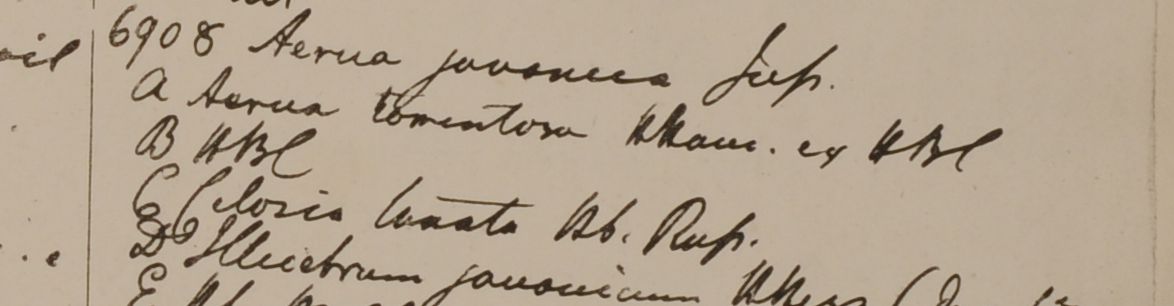 6908 Aerua javanica Jufs.
A Aerua tomentosa HHam. ex HBC
B HBC
C Celosia lanata Hb. Rufs.
D Illecebrum javanicum
E Hb.